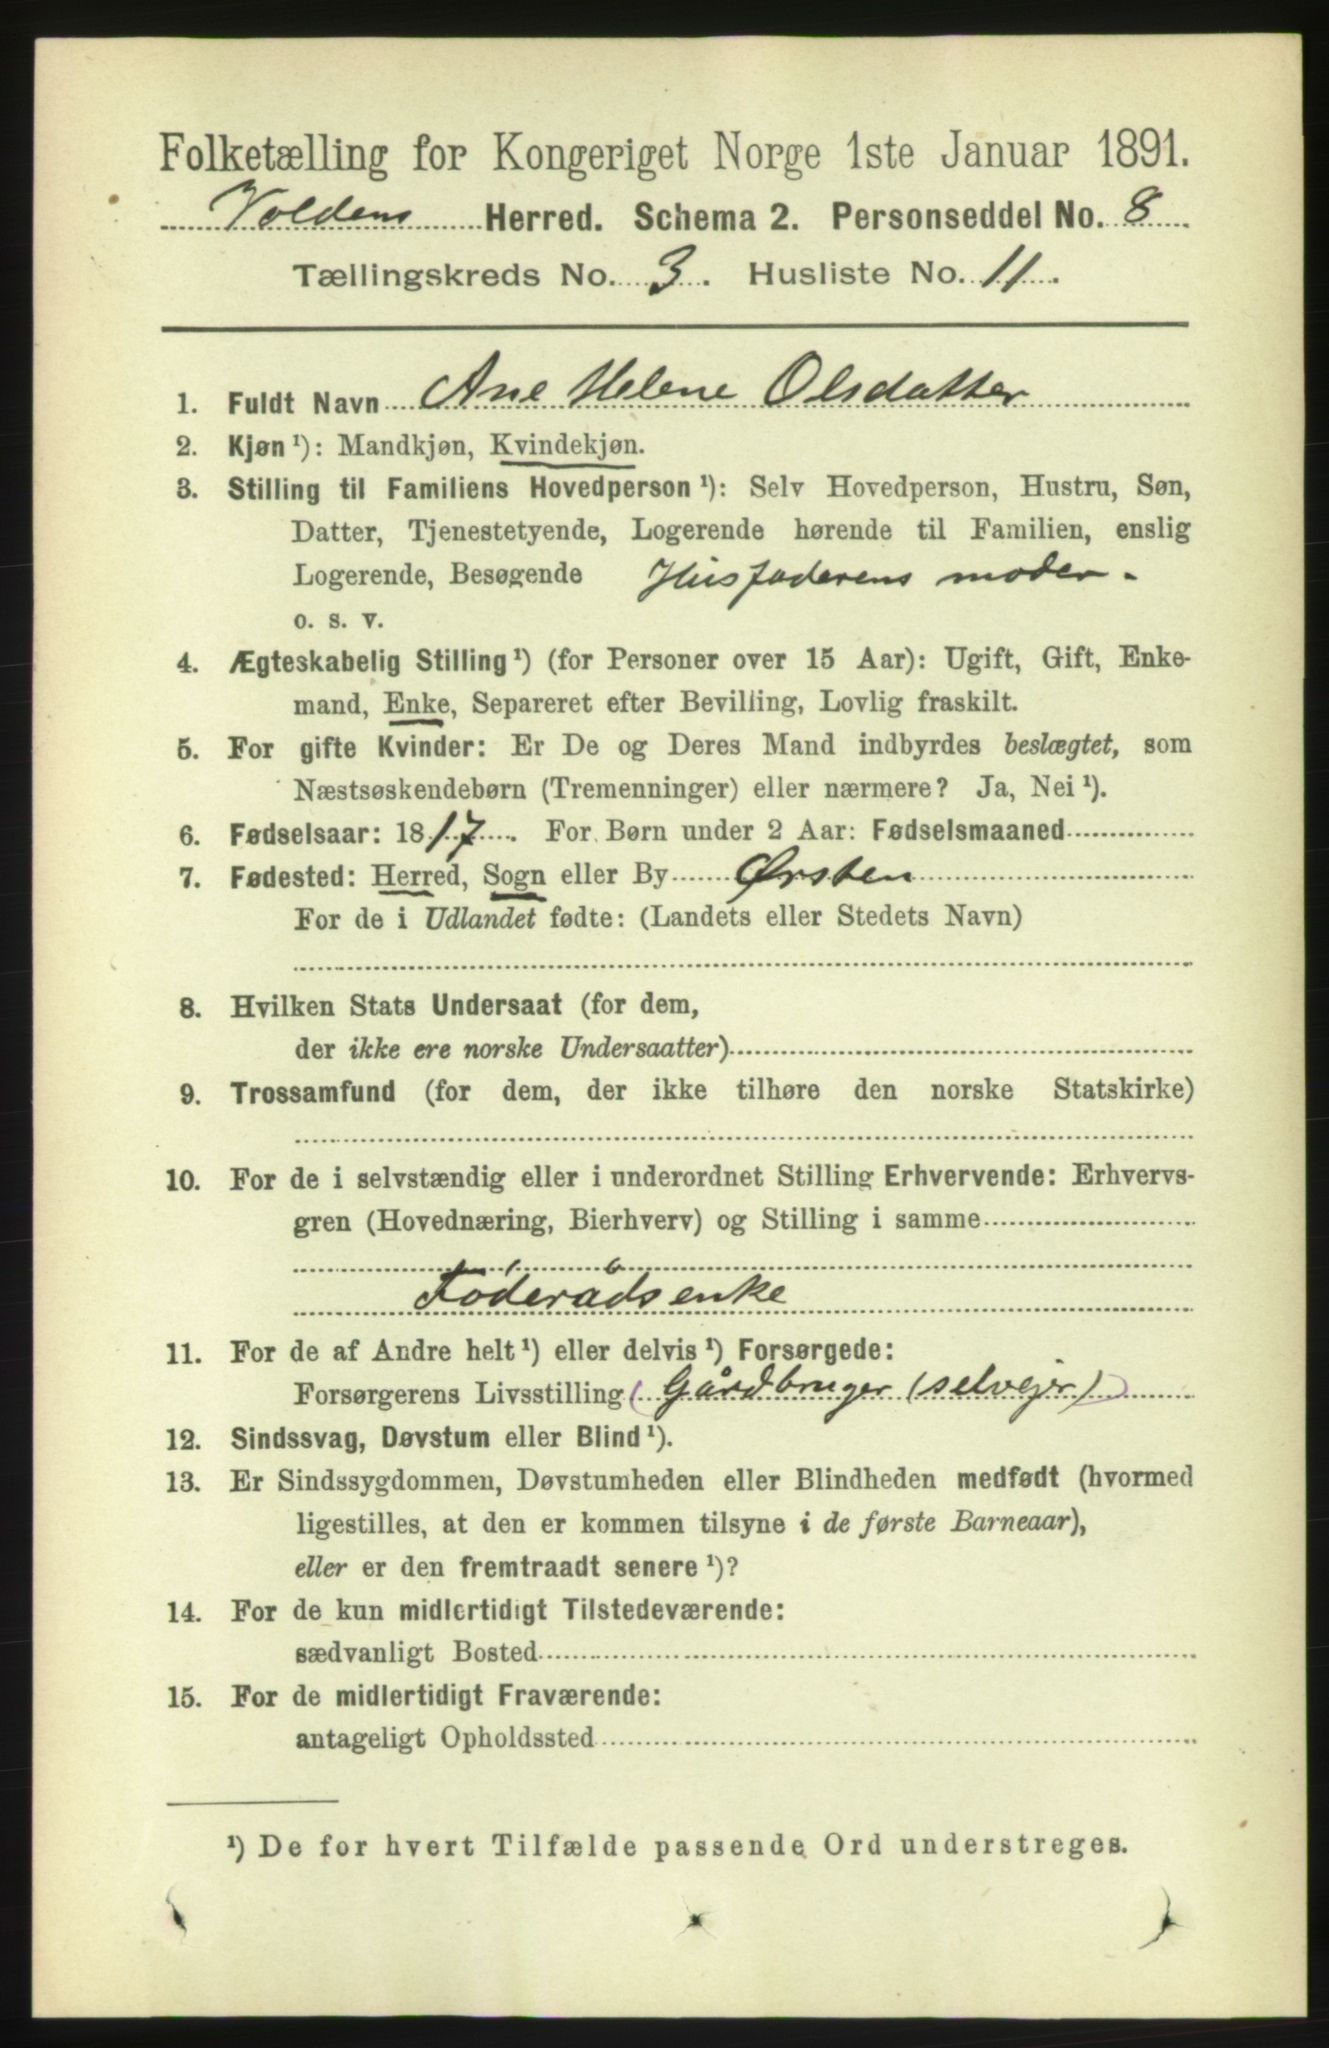 Folketælling for Kongeriget Norge 1ste Januar 1891.
Voldens Herred. Schema 2. Personseddel No. 8
Tællingskreds No. 3. Husliste No. 11.
1. Fuldt Navn Ane Helene Olsdatter
2. Kjøn ¹): Mandkjøn, Kvindekjøn.
3. Stilling til Familiens Hovedperson ¹): Selv Hovedperson, Hustru, Søn,
Datter, Tjenestetyende, Logerende hørende til Familien, enslig
Logerende, Besøgende Husfaderens moder.
o. s. v.
4. Ægteskabelig Stilling ¹) (for Personer over 15 Aar): Ugift, Gift, Enke-
mand, Enke, Separeret efter Bevilling, Lovlig fraskilt.
5. For gifte Kvinder: Er De og Deres Mand indbyrdes beslægtet, som
Næstsøskendebørn (Tremenninger) eller nærmere? Ja, Nei ¹).
6. Fødselsaar: 1817. For Børn under 2 Aar: Fødselsmaaned
7. Fødested: Herred, Sogn eller By Ørsten
For de i Udlandet fødte: (Landets eller Stedets Navn)
8. Hvilken Stats Undersaat (for dem,
der ikke ere norske Undersaatter)
9. Trossamfund (for dem, der ikke tilhøre den norske Statskirke)
10. For de i selvstændig eller i underordnet Stilling Erhvervende: Erhvervs-
gren (Hovednæring, Bierhverv) og Stilling i samme
Föderådsenke
11. For de af Andre helt ¹) eller delvis ¹) Forsørgede:
Forsørgerens Livsstilling (Gårdbruger (selvejer))
12. Sindssvag, Døvstum eller Blind ¹).
13. Er Sindssygdommen, Døvstumheden eller Blindheden medfødt (hvormed
ligestilles, at den er kommen tilsyne i de første Barneaar),
eller er den fremtraadt senere ¹)?
14. For de kun midlertidigt Tilstedeværende:
sædvanligt Bosted
15. For de midlertidigt Fraværende:
antageligt Opholdssted
¹) De for hvert Tilfælde passende Ord understreges.